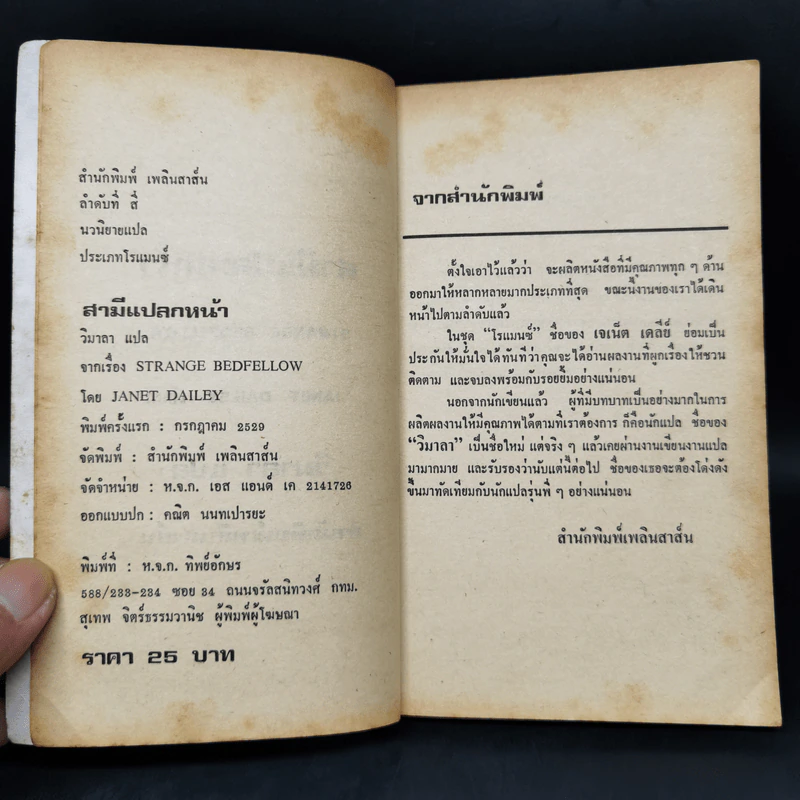 สำนักพิมพ์ เพลินสาส์น
ลำดับที่ สี่
นวนิยายแปล
ประเภทโรแมนซ์
สามีแปลกหน้า
วิมาลา แปล
จากเรื่อง STRANGE BEDFELLOW
โดย JANET DAILEY
พิมพ์ครั้งแรก : กรกฎาคม 2529
จัดพิมพ์ : สำนักพิมพ์ เพลินสาส์น
จัดจำหน่าย : ห.จ.ก. เอส แอนด์ เค 2141726
ออกแบบปก : คณิต นนทเปารยะ
พิมพ์ที่ : ห.จ.ก. ทิพย์อักษร
588/233-234 ซอย 34 ถนนจรัลสนิทวงศ์ กทม.
สุเทพ จิตร์ธรรมวานิช ผู้พิมพ์ผู้โฆษณา
ราคา 25 บาท
จากสำนักพิมพ์
ตั้งใจเอาไว้แล้วว่า จะผลิตหนังสือที่มีคุณภาพทุก ๆ ด้าน
ออกมาให้หลากหลายมากประเภทที่สุด ขณะนี้งานของเราได้เดิน
หน้าไปตามลำดับแล้ว
ในชุด "โรแมนซ์" ชื่อของ เจเน็ต เดลีย์ ย่อมเป็น
ประกันให้มั่นใจได้ทันทีว่าคุณจะได้อ่านผลงานที่ผูกเรื่องให้ชวน
ติดตาม และจบลงพร้อมกับรอยยิ้มอย่างแน่นอน
นอกจากนักเขียนแล้ว ผู้ที่มีบทบาทเป็นอย่างมากในการ
ผลิตผลงานให้มีคุณภาพได้ตามที่เราต้องการ ก็คือนักแปล ชื่อของ
"วิมาลา" เป็นชื่อใหม่ แต่จริง ๆ แล้วเคยผ่านงานเขียนงานแปล
มามากมาย และรับรองว่านับแต่นี้ต่อไป ชื่อของเธอจะต้องโด่งดัง
ขึ้นมาทัดเทียมกับนักแปลรุ่นพี่ ๆ อย่างแน่นอน
สำนักพิมพ์เพลินสาส์น